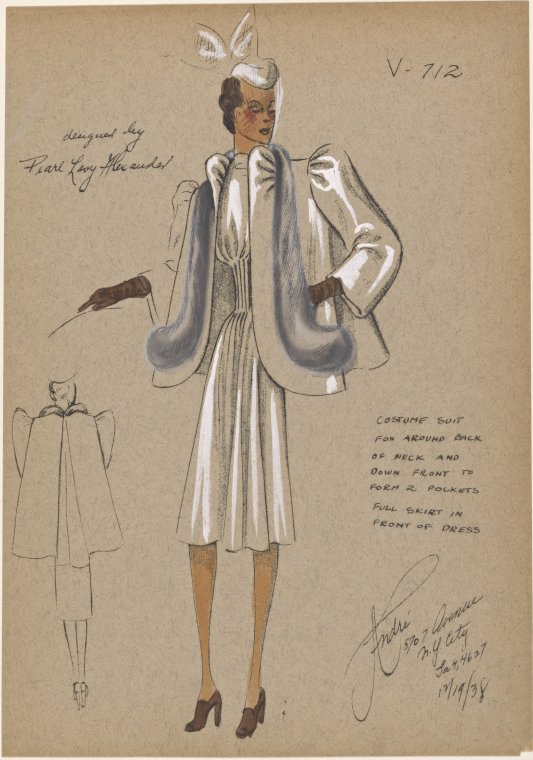 V-712
designed by
Pearl Levy Alexander
COSTUME SUIT
FOX AROUND BACK
OF NECK AND
DOWN FRONT TO
FORM 2 POCKETS
FULL SKIRT IN
FRONT OF DRESS
André
570 7 Avenue
N.Y. City
4627
12/19/38